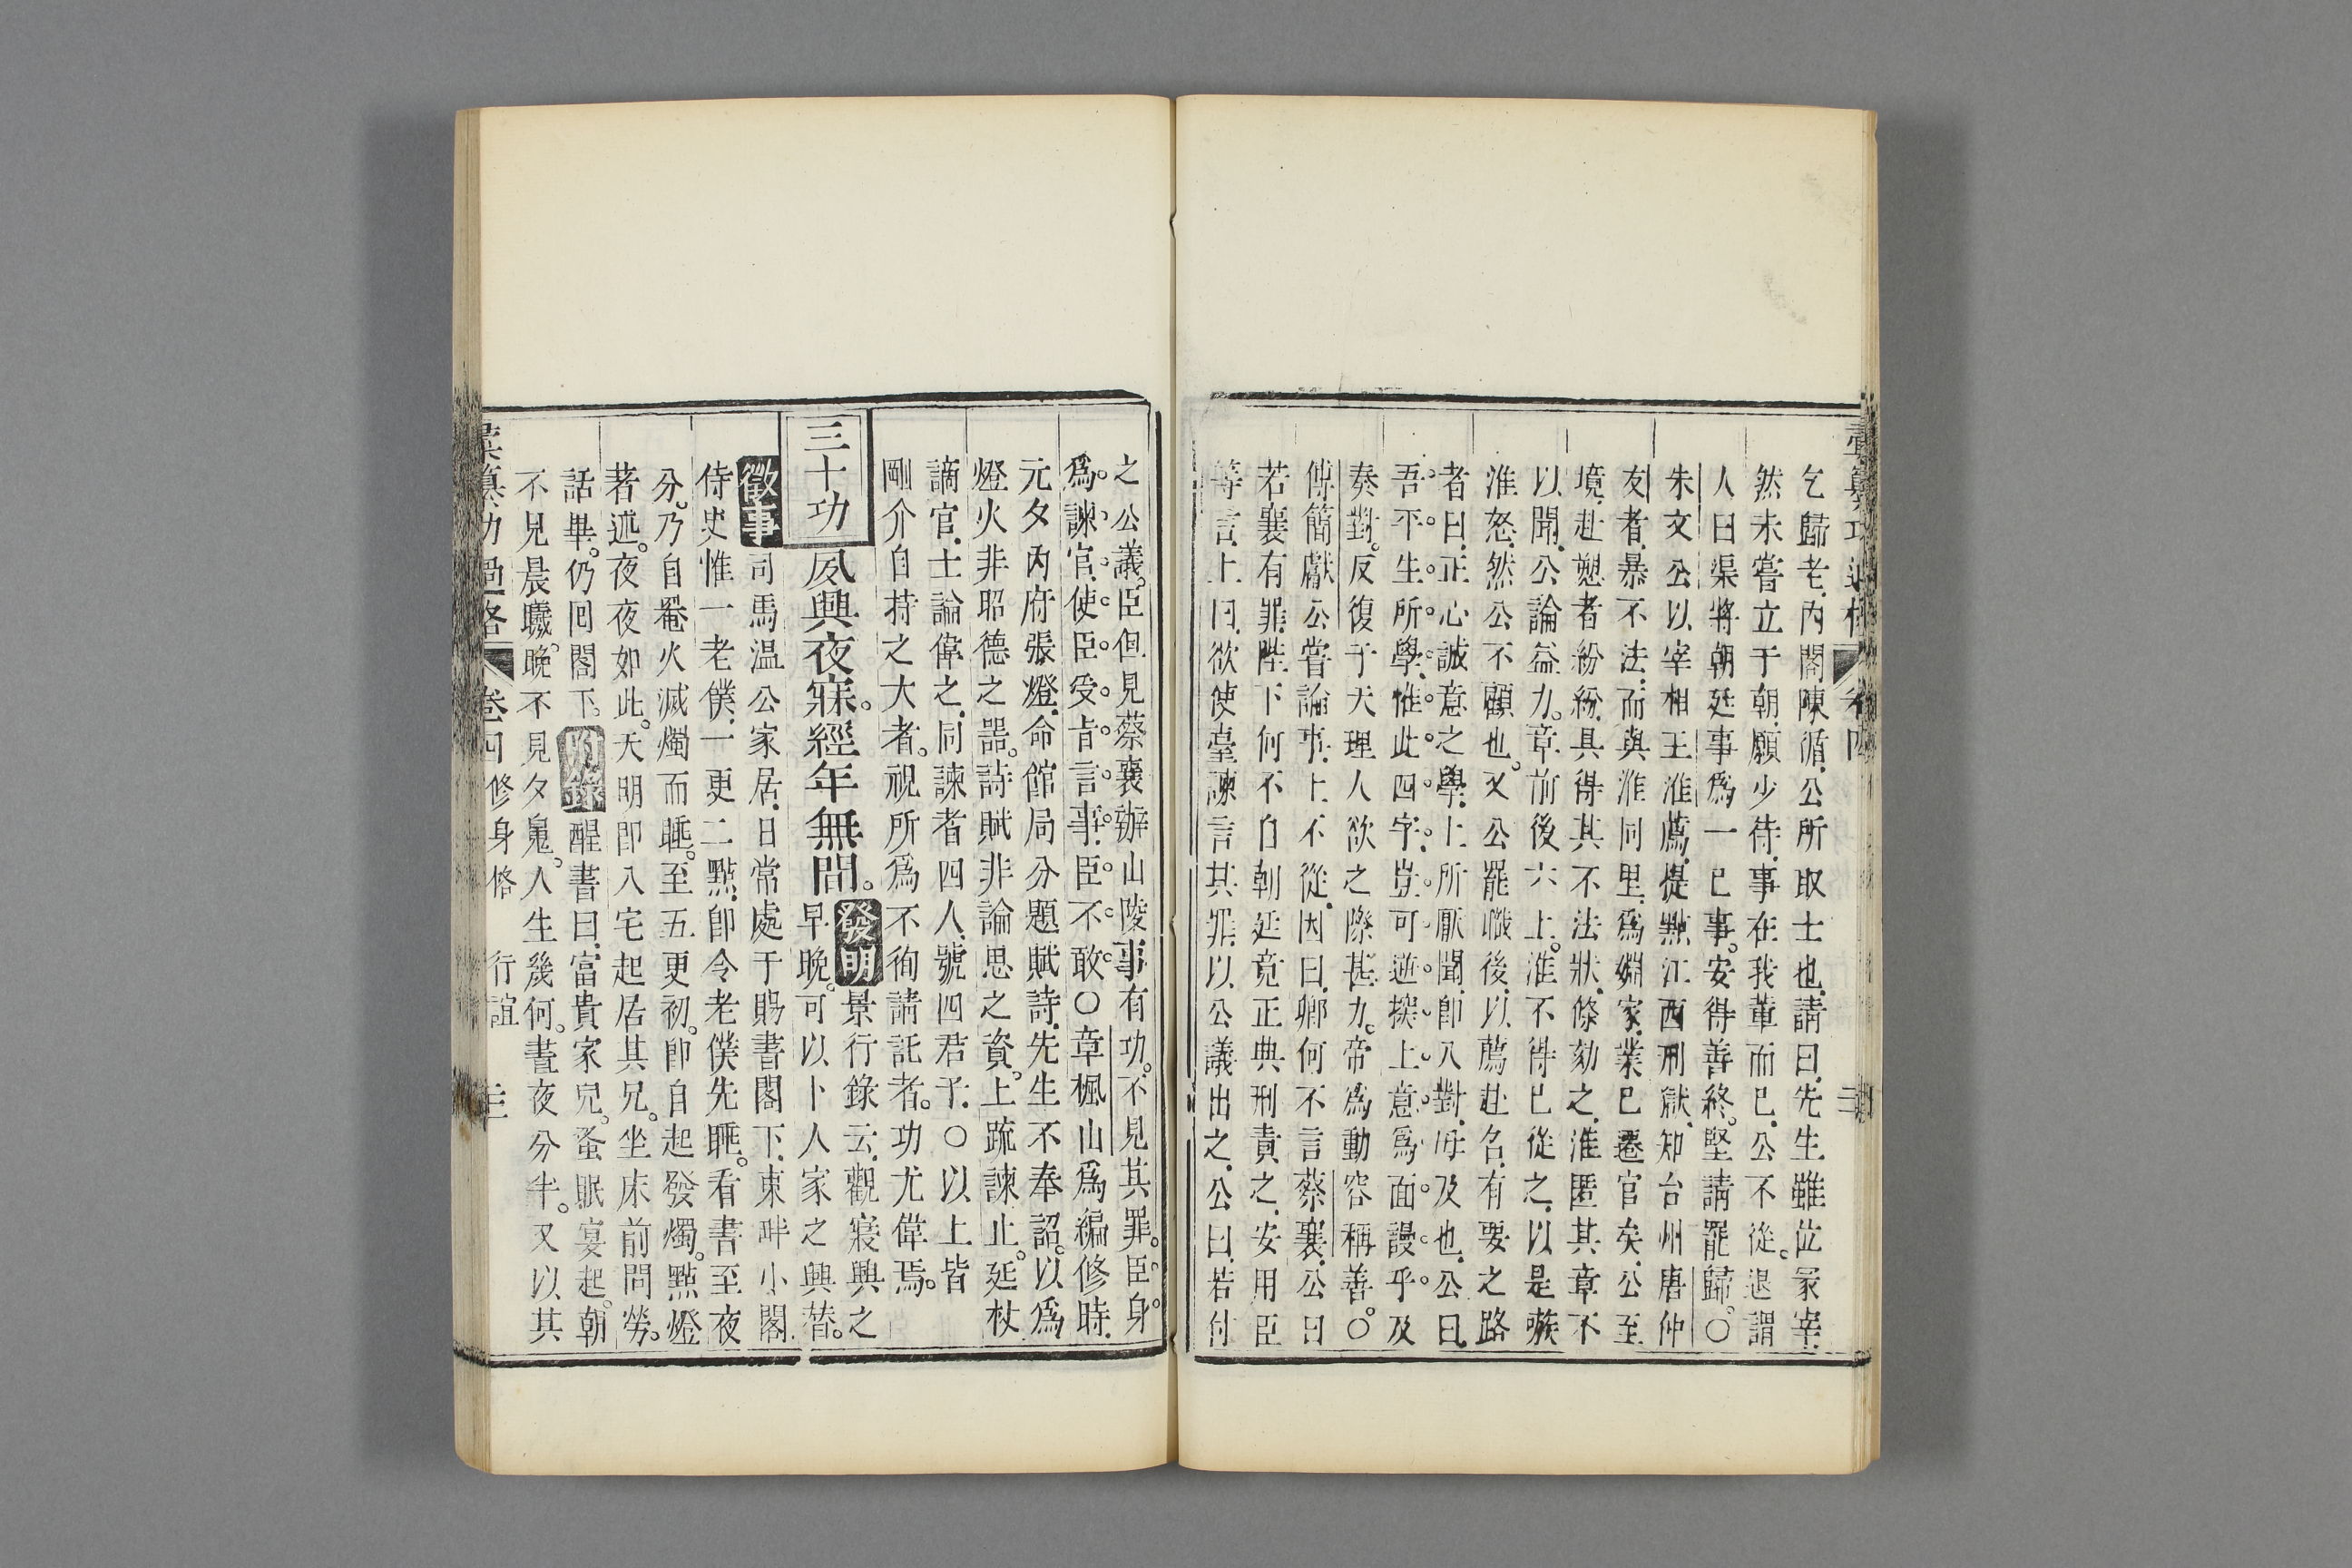 乞歸老内閣陳循公所取士也請曰先生雖位冡宰
然未嘗立于朝願少待事在我輩而已公不從退謂
人曰渠將朝廷事爲一已事安得善終堅請罷歸○
朱文公以宰相王淮薦提點江西刑獄知台州唐仲
友者暴不法而與淮同里爲婣家業已遷官矣公至
境赴愬者紛紛具得其不法狀條劾之淮匿其章不
以聞公論益力章前後六上淮不得已從之以是嗾
淮怒然公不顧也又公罷職後以薦赴名有要之路
者曰正心誠意之學上所厭聞即入對毋及也公曰
吾平生所學惟此四字豈可遊揆上意爲面謾乎及
奏對反復于天理人欲之際甚力帝爲動容稱善○
傅簡獻公嘗論事上不從因曰卿何不言蔡襄公曰
若襄有罪陛下何不自朝廷竟正典刑責之安用臣
等言上曰欲使臺諫言其罪以公議出之公曰若付
之公議臣但見蔡襄辦山陵事有功不見其罪臣身
爲諫官使臣受旨言事臣不敢○章楓山爲編修時
元夕内府張燈命館局分題賦詩先生不奉詔以爲
燈火非昭德之器詩賦非論思之資上疏諫止廷杖
謫官士論偉之同諫者四人號四君子○以上皆
剛介自持之大者視所爲不徇請託者功尤偉焉
三十功 夙興夜寐經年無間 發明 景行錄云觀寢興之
早晚可以卜人家之興替
徵事 司馬温公家居日常處于賜書閣下東畔小閣
侍史惟一老僕一更二點即令老僕先睡看書至夜
分乃自罨火滅燭而睡至五更初即自起發燭點燈
著述夜夜如此天明即入宅起居其兄坐床前問勞
話畢仍回閣下 附錄 醒書曰富貴家兒蚤眠宴起朝
不見晨曦晚不見夕鬼人生幾何晝夜分半又以其
彙纂功過格 卷四 修身格 行誼